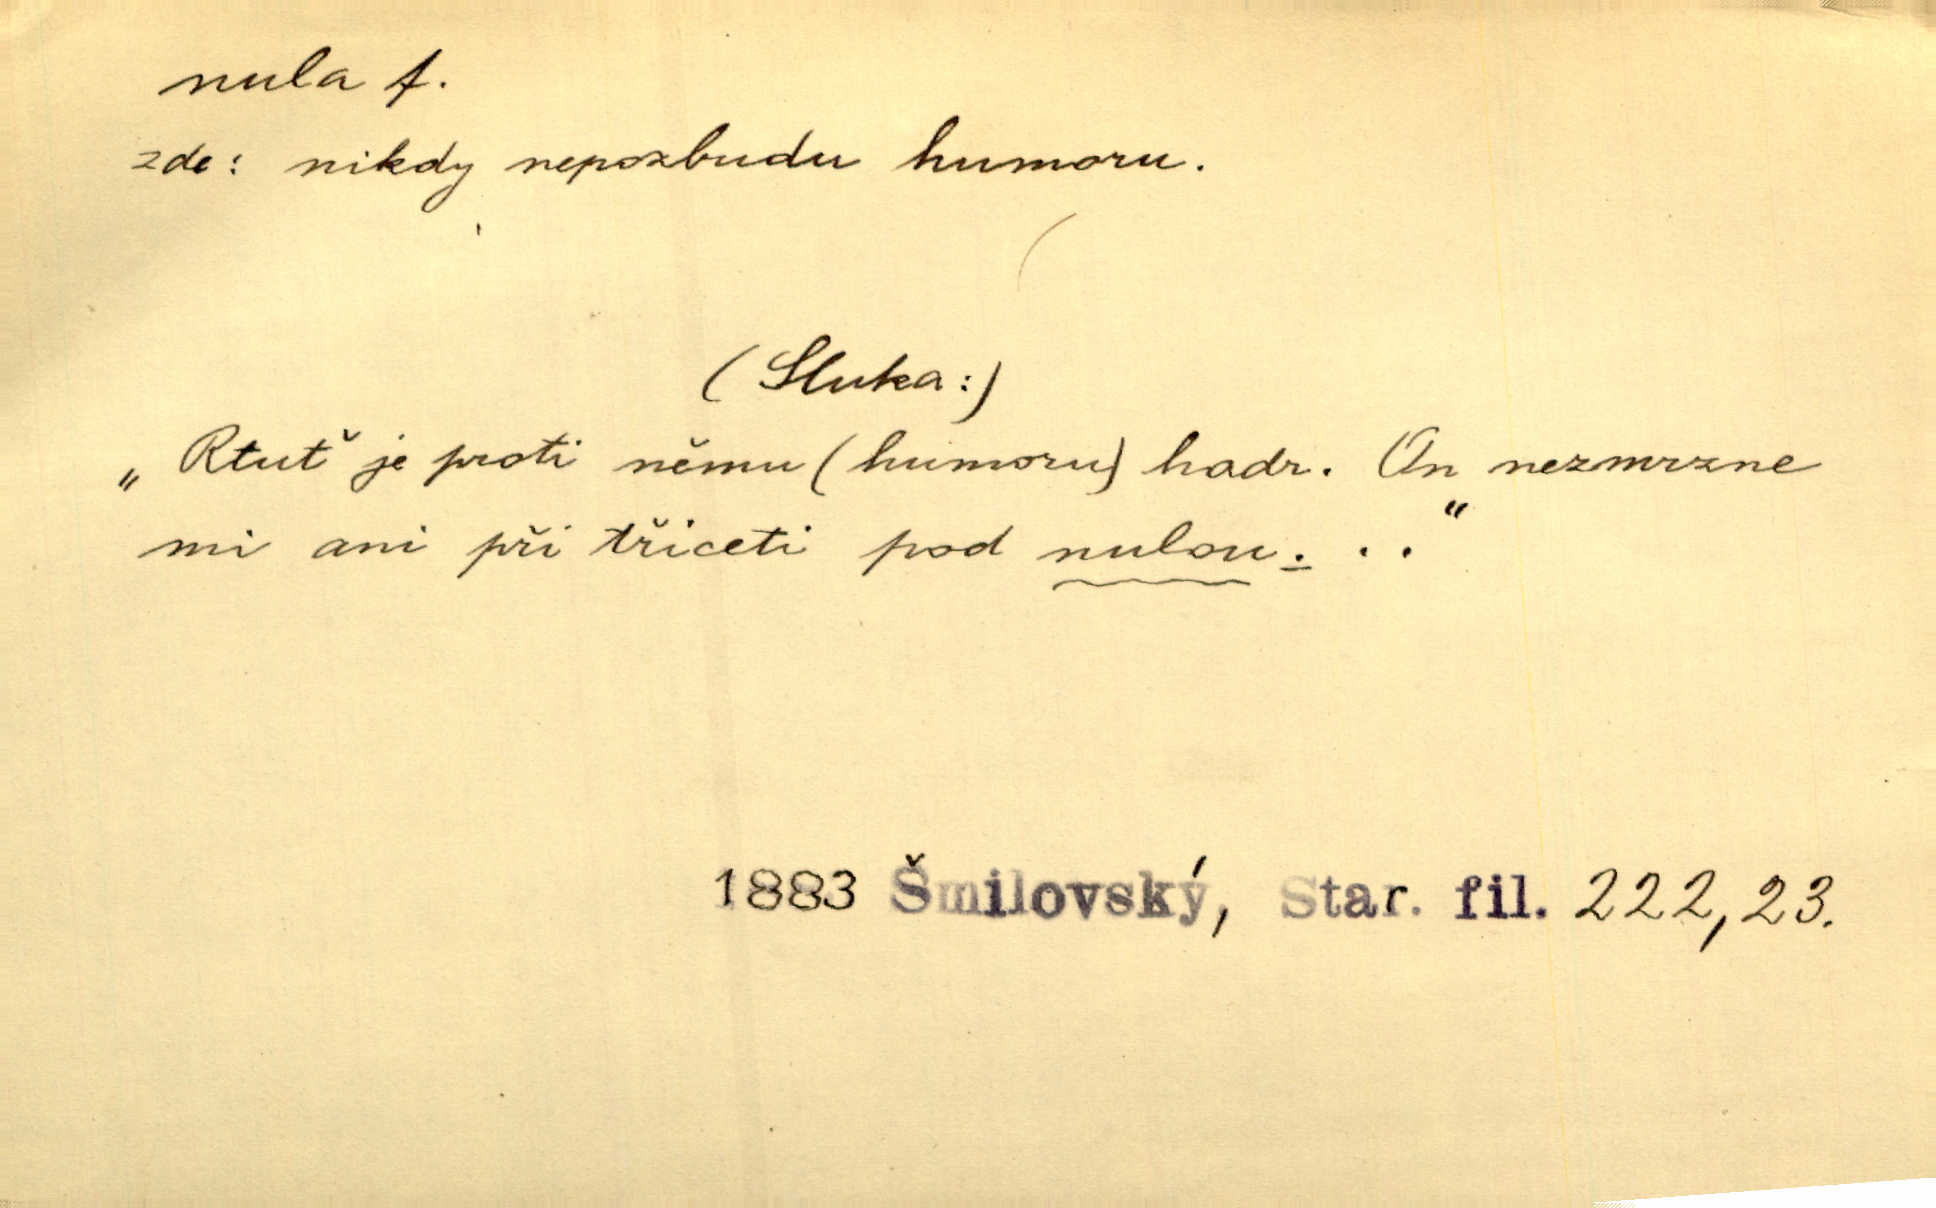 nula f.
zde: nikdy nepozbudu humoru.
(Sluka:)
„Rtuť je proti němu (humoru) hadr. On nezmrzne
mi ani při třiceti pod nulou...“
1883 Šmilovský, Star. fil. 222,23.